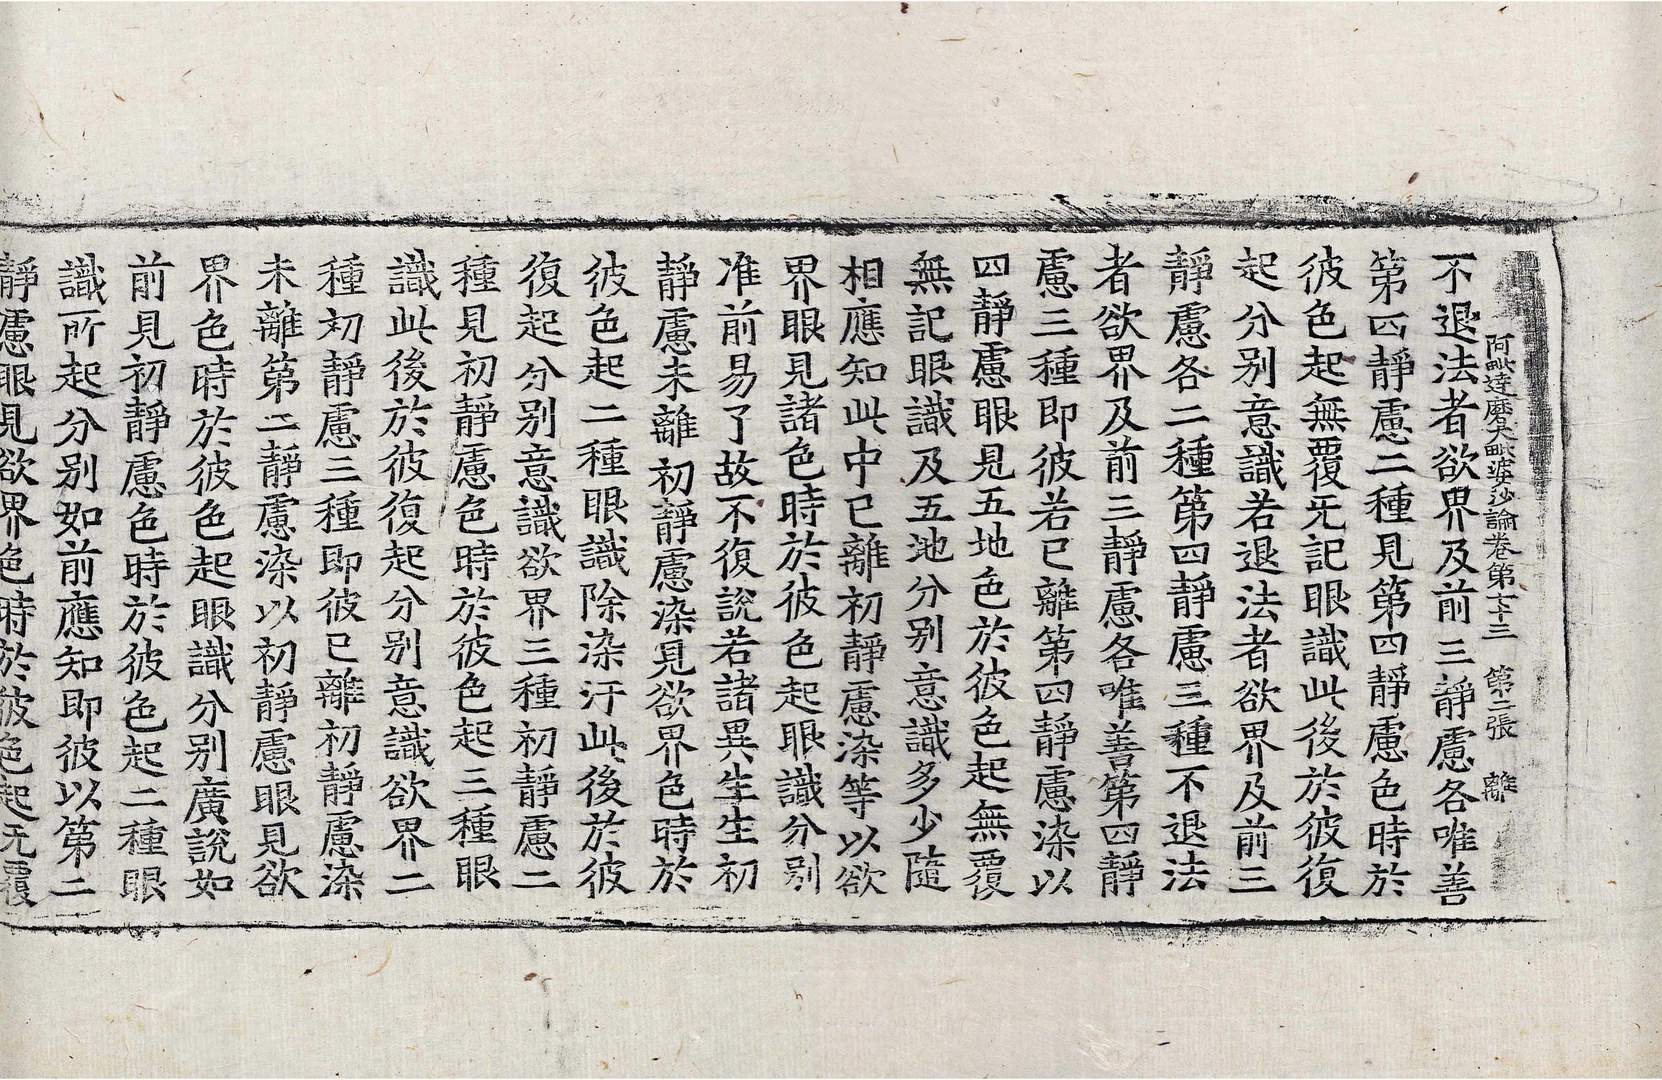 阿毗達磨大毗婆沙論卷第七十三 第二張 離
不退法者欲界及前三靜慮各唯善
第四靜慮二種見第四靜慮色時於
彼色起無覆无記眼識此後於彼復
起分別意識若退法者欲界及前三
靜慮各二種第四靜慮三種不退法
者欲界及前三靜慮各唯善第四靜
慮三種即彼若已離第四靜慮染以
四靜慮眼見五地色於彼色起無覆
無記眼識及五地分別意識多少隨
相應知此中已離初靜慮染等以欲
界眼見諸色時於彼色起眼識分別
准前易了故不復說若諸異生生初
靜慮未離初靜慮染見欲界色時於
彼色起二種眼識除染汙此後於彼
復起分別意識欲界三種初靜慮二
種見初靜慮色時於彼色起三種眼
識此後於彼復起分別意識欲界二
種初靜慮三種即彼已離初靜慮染
未離第二靜慮染以初靜慮眼見欲
界色時於彼色起眼識分別廣說如
前見初靜慮色時於彼色起二種眼
識所起分別如前應知即彼以第二
靜慮眼見欲界色時於彼色起无覆